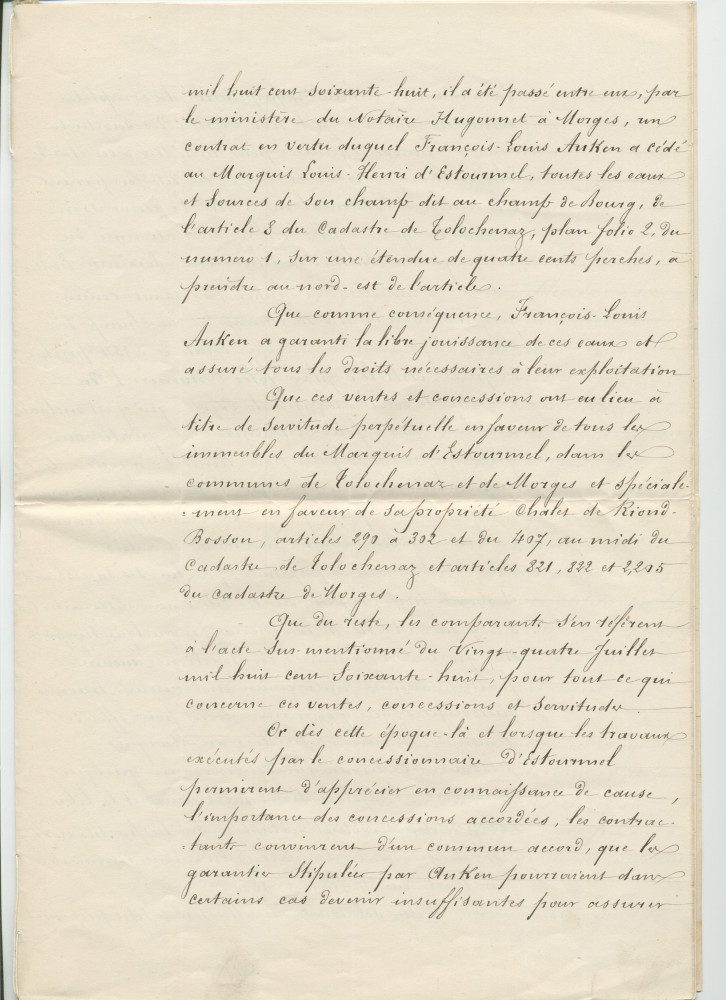 mil huit cent soixante-huit, il a été passé entre eux, par
le ministère du Notaire Hugonnet à Morges, un
contrat en vertu duquel François-Louis Auken a cédé
au Marquis Louis-Henri d'Estourmel, toutes les eaux
et sources de son champ dit au champ de Bourg, de
l'article 8 du Cadastre de Tolochenaz, plan folio 2, du
numero 1, sur une étendue de quatre cents perches, à
prendre au nord-est de l'article.
Que comme conséquence, François-Louis
Auken a garanti la libre jouissance de ces eaux et
assuré tous les droits nécessaires à leur exploitation
Que ces ventes et concessions ont eu lieu à
titre de servitude perpétuelle en faveur de tous les
immeubles du Marquis d'Estourmel, dans les
communes de Tolochenaz et de Morges et spéciale-
=ment en faveur de sa propriété Chalet de Riond-
Bosson, articles 290 à 302 et du 407, au midi du
Cadastre de Tolochenaz et articles 821, 822 et 2,205
du cadastre de Morges.
Que du reste, les comparants s'en réfèrent
à l'acte sus-mentionné du Vingt-quatre Juillet
mil huit cent soixante-huit, pour tout ce qui
concerne ces ventes, concessions et servitudes.
Or dès cette époque-là et lorsque les travaux
exécutés par le concessionnaire d'Estourmel
permirent d'apprécier en connaissance de cause,
l'importance des concessions accordées, les contrac-
=tants convinrent d'un commun accord, que les
garanties stipulées par Auken pourraient dans
certains cas devenir insuffisantes pour assurer